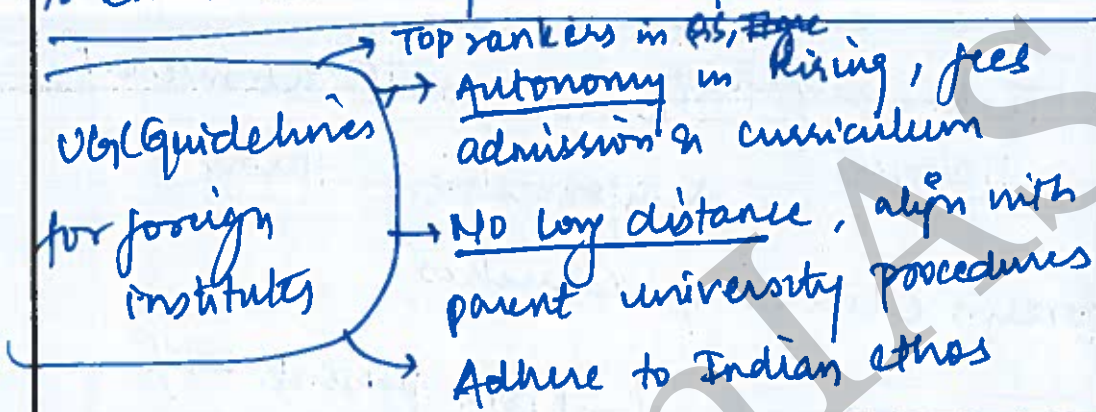 Top rankers in QS,
UGC Guidelines
for foreign
institutes
Autonomy in hiring, fees
admission & curriculum
No long distance, align with
parent university procedures
Adhere to Indian ethos
IAS